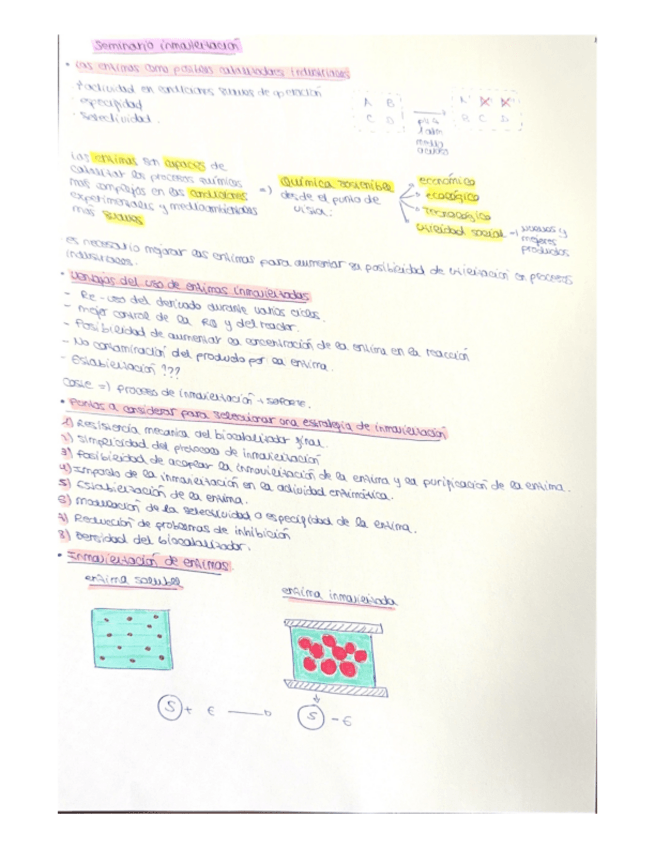 Seminario inmovilización
• Las enzimas como posibles catalizadores industriales
↑actividad en condiciones suaves de operación
· especificidad
· selectividad.
A B
C D
pH 7
1 atm
medio
acuoso
A X X
B C D
Las enzimas son capaces de
catalizar los procesos químicos
más complejos en las condiciones
experimentales y medioambientales
más suaves
=) Química sostenible
desde el punto de
vista:
económico
ecológico
tecnológico
utilidad social → nuevos y
mejores
productos
· es necesario mejorar las enzimas para aumentar su posibilidad de utilización en procesos
industriales.
• Ventajas del uso de enzimas inmovilizadas
- Re-uso del derivado durante varios ciclos.
- mejor control de la RQ y del reactor.
- Posibilidad de aumentar la concentración de la enzima en la reacción
- No contaminación del producto por la enzima.
- Estabilización ???
Coste =) proceso de inmovilización + soporte.
• Puntos a considerar para seleccionar una estrategia de inmovilización
1) Resistencia mecánica del biocatalizador final.
2) Simplicidad del protocolo de inmovilización
3) Posibilidad de acoplar la inmovilización de la enzima y la purificación de la enzima.
4) Impacto de la inmovilización en la actividad enzimática.
5) Estabilización de la enzima.
6) Modulación de la selectividad o especificidad de la enzima.
7) Reducción de problemas de inhibición
8) Densidad del biocatalizador.
• Inmovilización de enzimas
enzima soluble
enzima inmovilizada
S + E → S - E